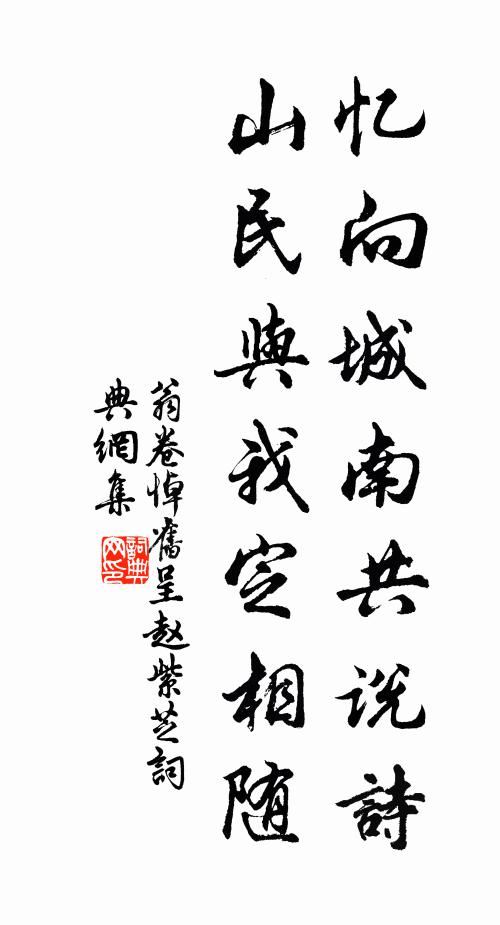 忆向城南共说詩
山民與我定相随
翁卷悼舊呈赵紫芝詞
典網集
詞典网印